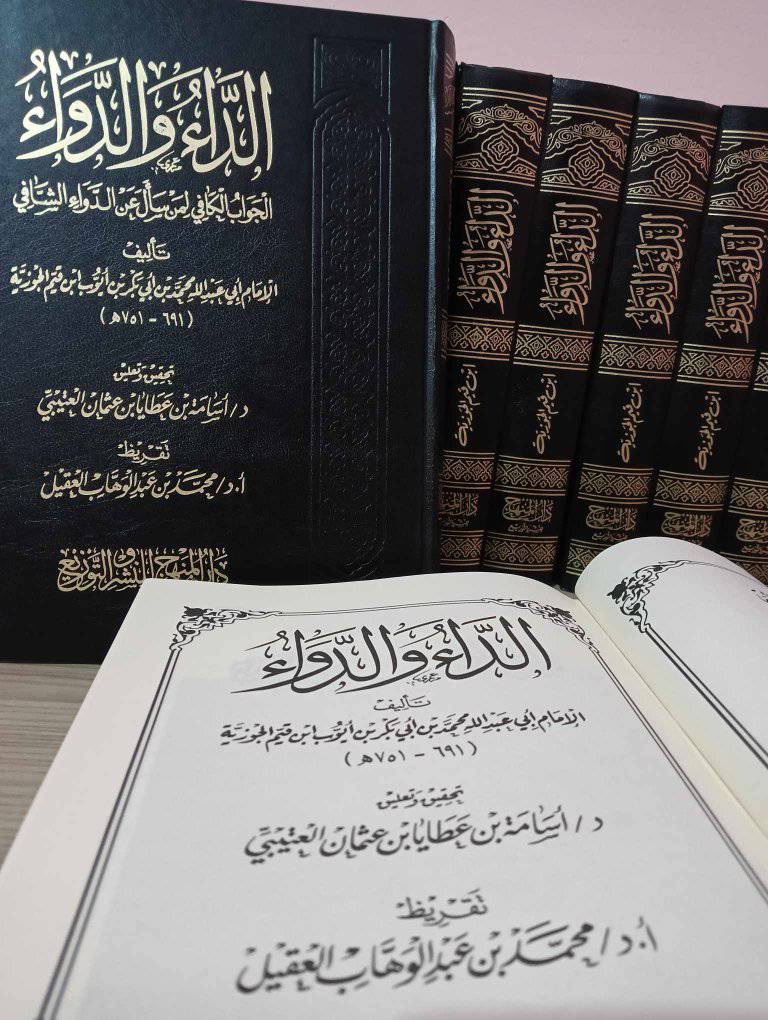 الدَّاءُ وَالدَّوَاءُ
الجَوَابُ الكَافِي لِمَن سَأَلَ عَنِ الدَّوَاءِ الشَّافِي
تَأْلِيفُ
الإِمَامِ أَبِي عَبْدِ اللهِ مُحَمَّدِ بْنِ أَبِي بَكْرِ بْنِ أَيُّوبَ ابْنِ قَيِّمِ الجَوْزِيَّةِ
(٦٩١ - ٧٥١هـ)
تحقيق وتعليق
د/أسَامَة بْن عَطَايَا بن عثمان العتيبيّ
تَقْرِيظ
أ.د/ محمَّد بْن عَبْدِ الوَهَّاب العَقِيل
دار المنهج للنشر والتوزيع
الداء والدواء
ابن قيم الجوزية
دار المنهج
للنشر والتوزيع
الداء والدواء
ابن قيم الجوزية
دار المنهج
للنشر والتوزيع
الداء والدواء
ابن قيم الجوزية
دار المنهج
للنشر والتوزيع
الداء والدواء
ابن قيم الجوزية
دار المنهج
للنشر والتوزيع
الدَّاءُ وَالدَّوَاءُ
تَأْلِيفُ
الإِمَامِ أَبِي عَبْدِ اللهِ مُحَمَّدِ بْنِ أَبِي بَكْرِ بْنِ أَيُّوبَ ابْنِ قَيِّمِ الجَوْزِيَّةِ
(٦٩١ - ٧٥١هـ)
تحقيق وتعليق
د/أسَامَة بْن عَطَايَا بن عثمان العتيبيّ
تَقْرِيظ
أ.د/ محمَّد بْن عَبْدِ الوَهَّاب العَقِيل